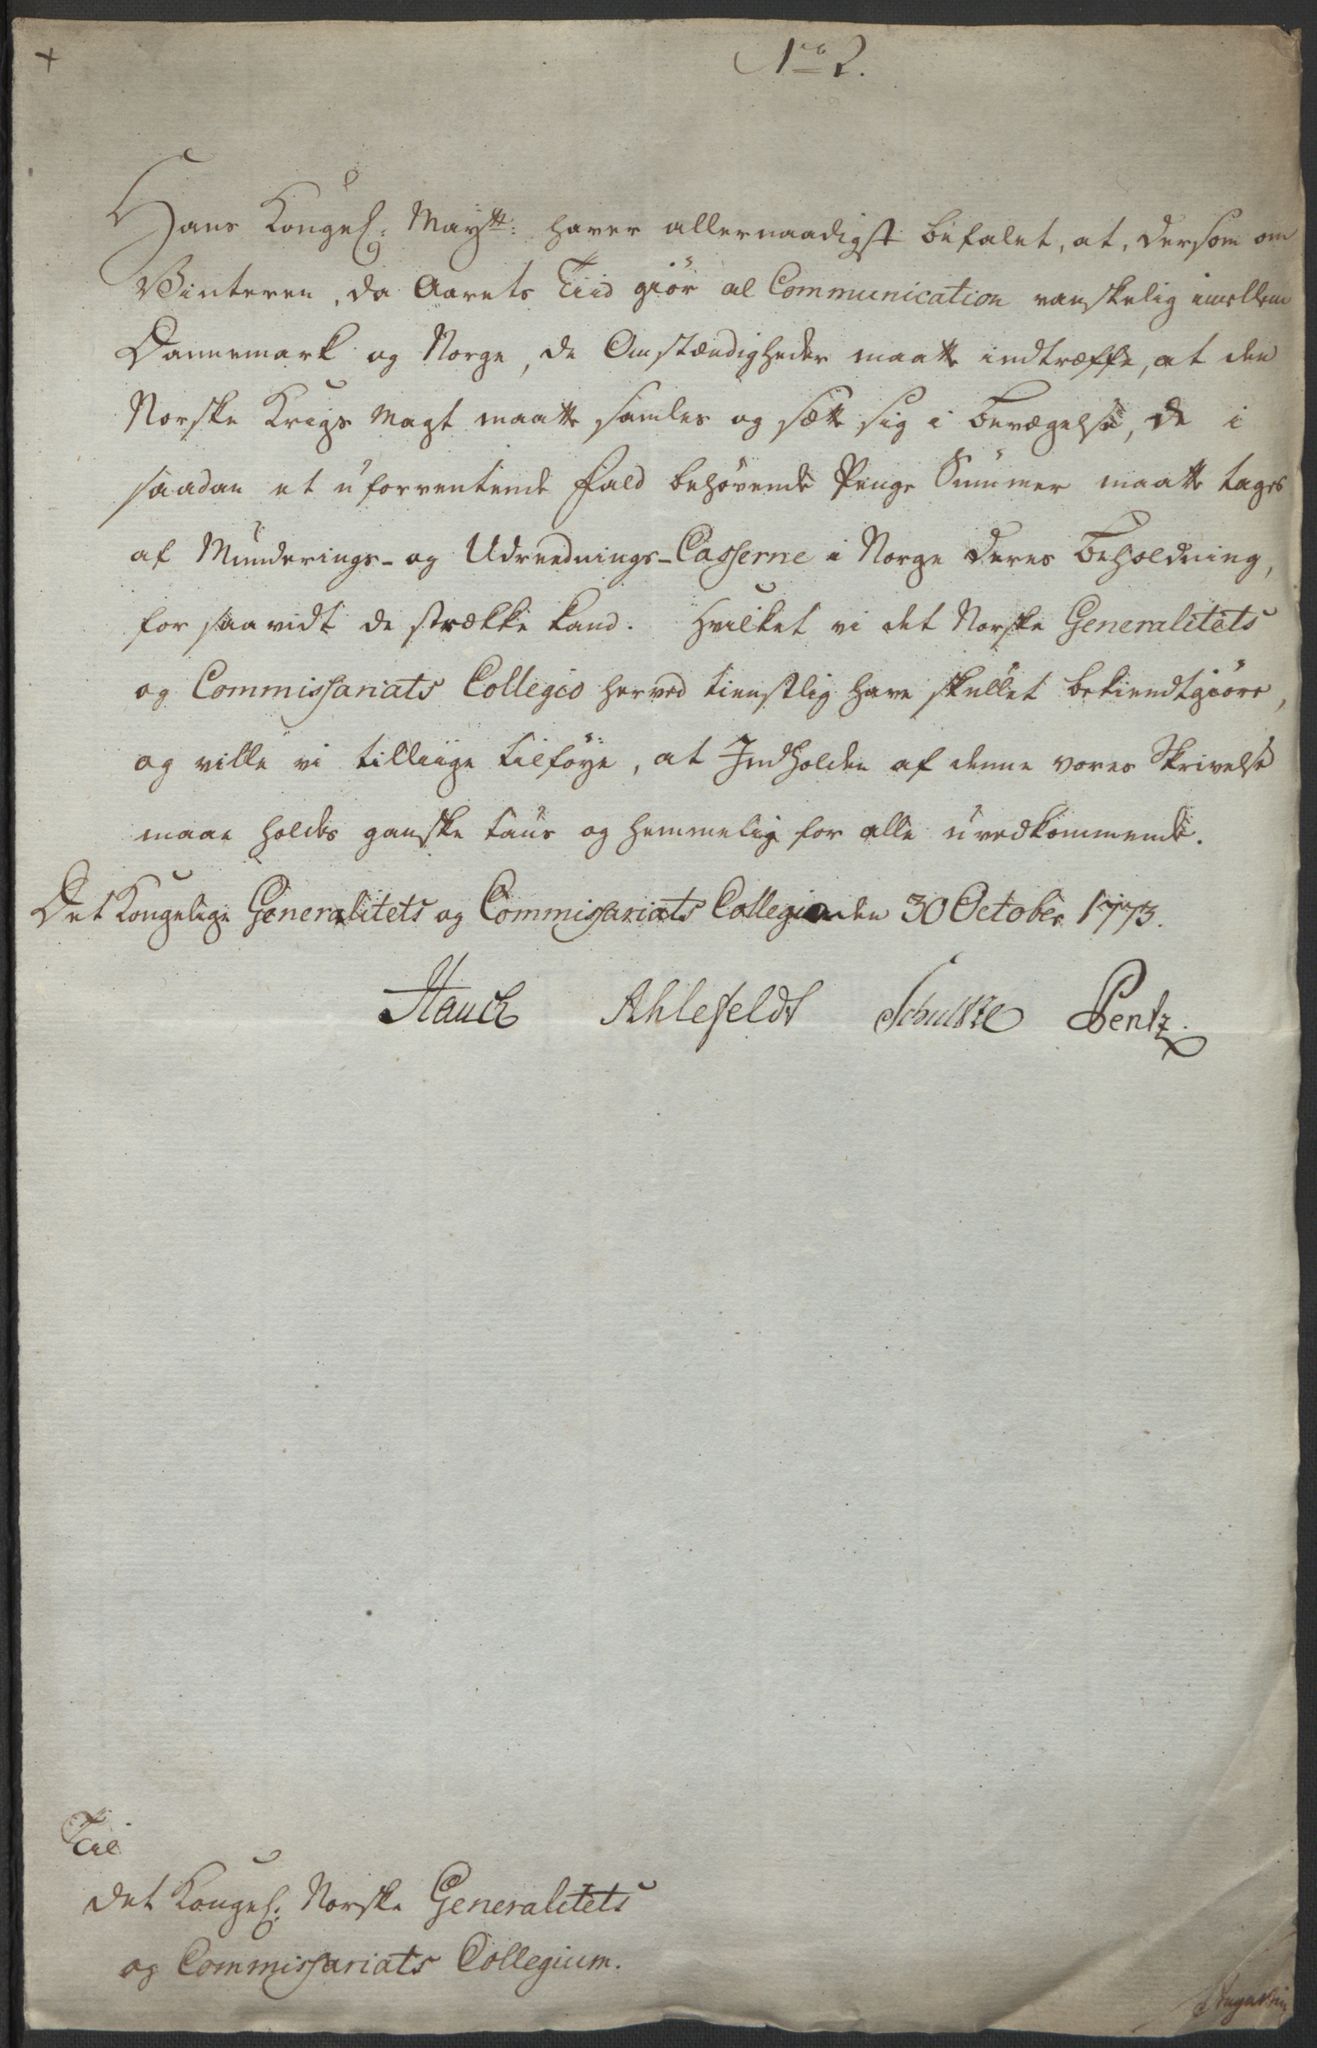 No 2.
Hans Kongel: Maytt: haver allernaadigst befalet, at, dersom om
Vinteren, da Aarets Tiid giör al Communication vanskelig imellem
Dannemark og Norge, de Omstændigheder maatte indtræffe, at den
Norske Krigs Magt maatte samles og sætte sig i Bevægelse, de i
saadan et uforventende Fald behøvende Penge Summer maatte tages
af Munderings- og Udreednings-Casserne i Norge deres Beholdning,
for saavidt de strække kand. Hvilket vi det Norske Generalitets
og Commissariats Collegio herved tienstlig have skullet bekiendtgiöre,
og ville vi tilliige tilföye, at Indholden af denne vores Skrivelse
maae holdes ganske taus og hemmelig for alle uvedkommende.
Det Kongelige Generalitets og Commissariats Collegio den 30 October 1773.
Hauch Ahlefeldt Schultze Bentz.
Til
Det Kongel: Norske Generalitets
og Commissariats Collegium.